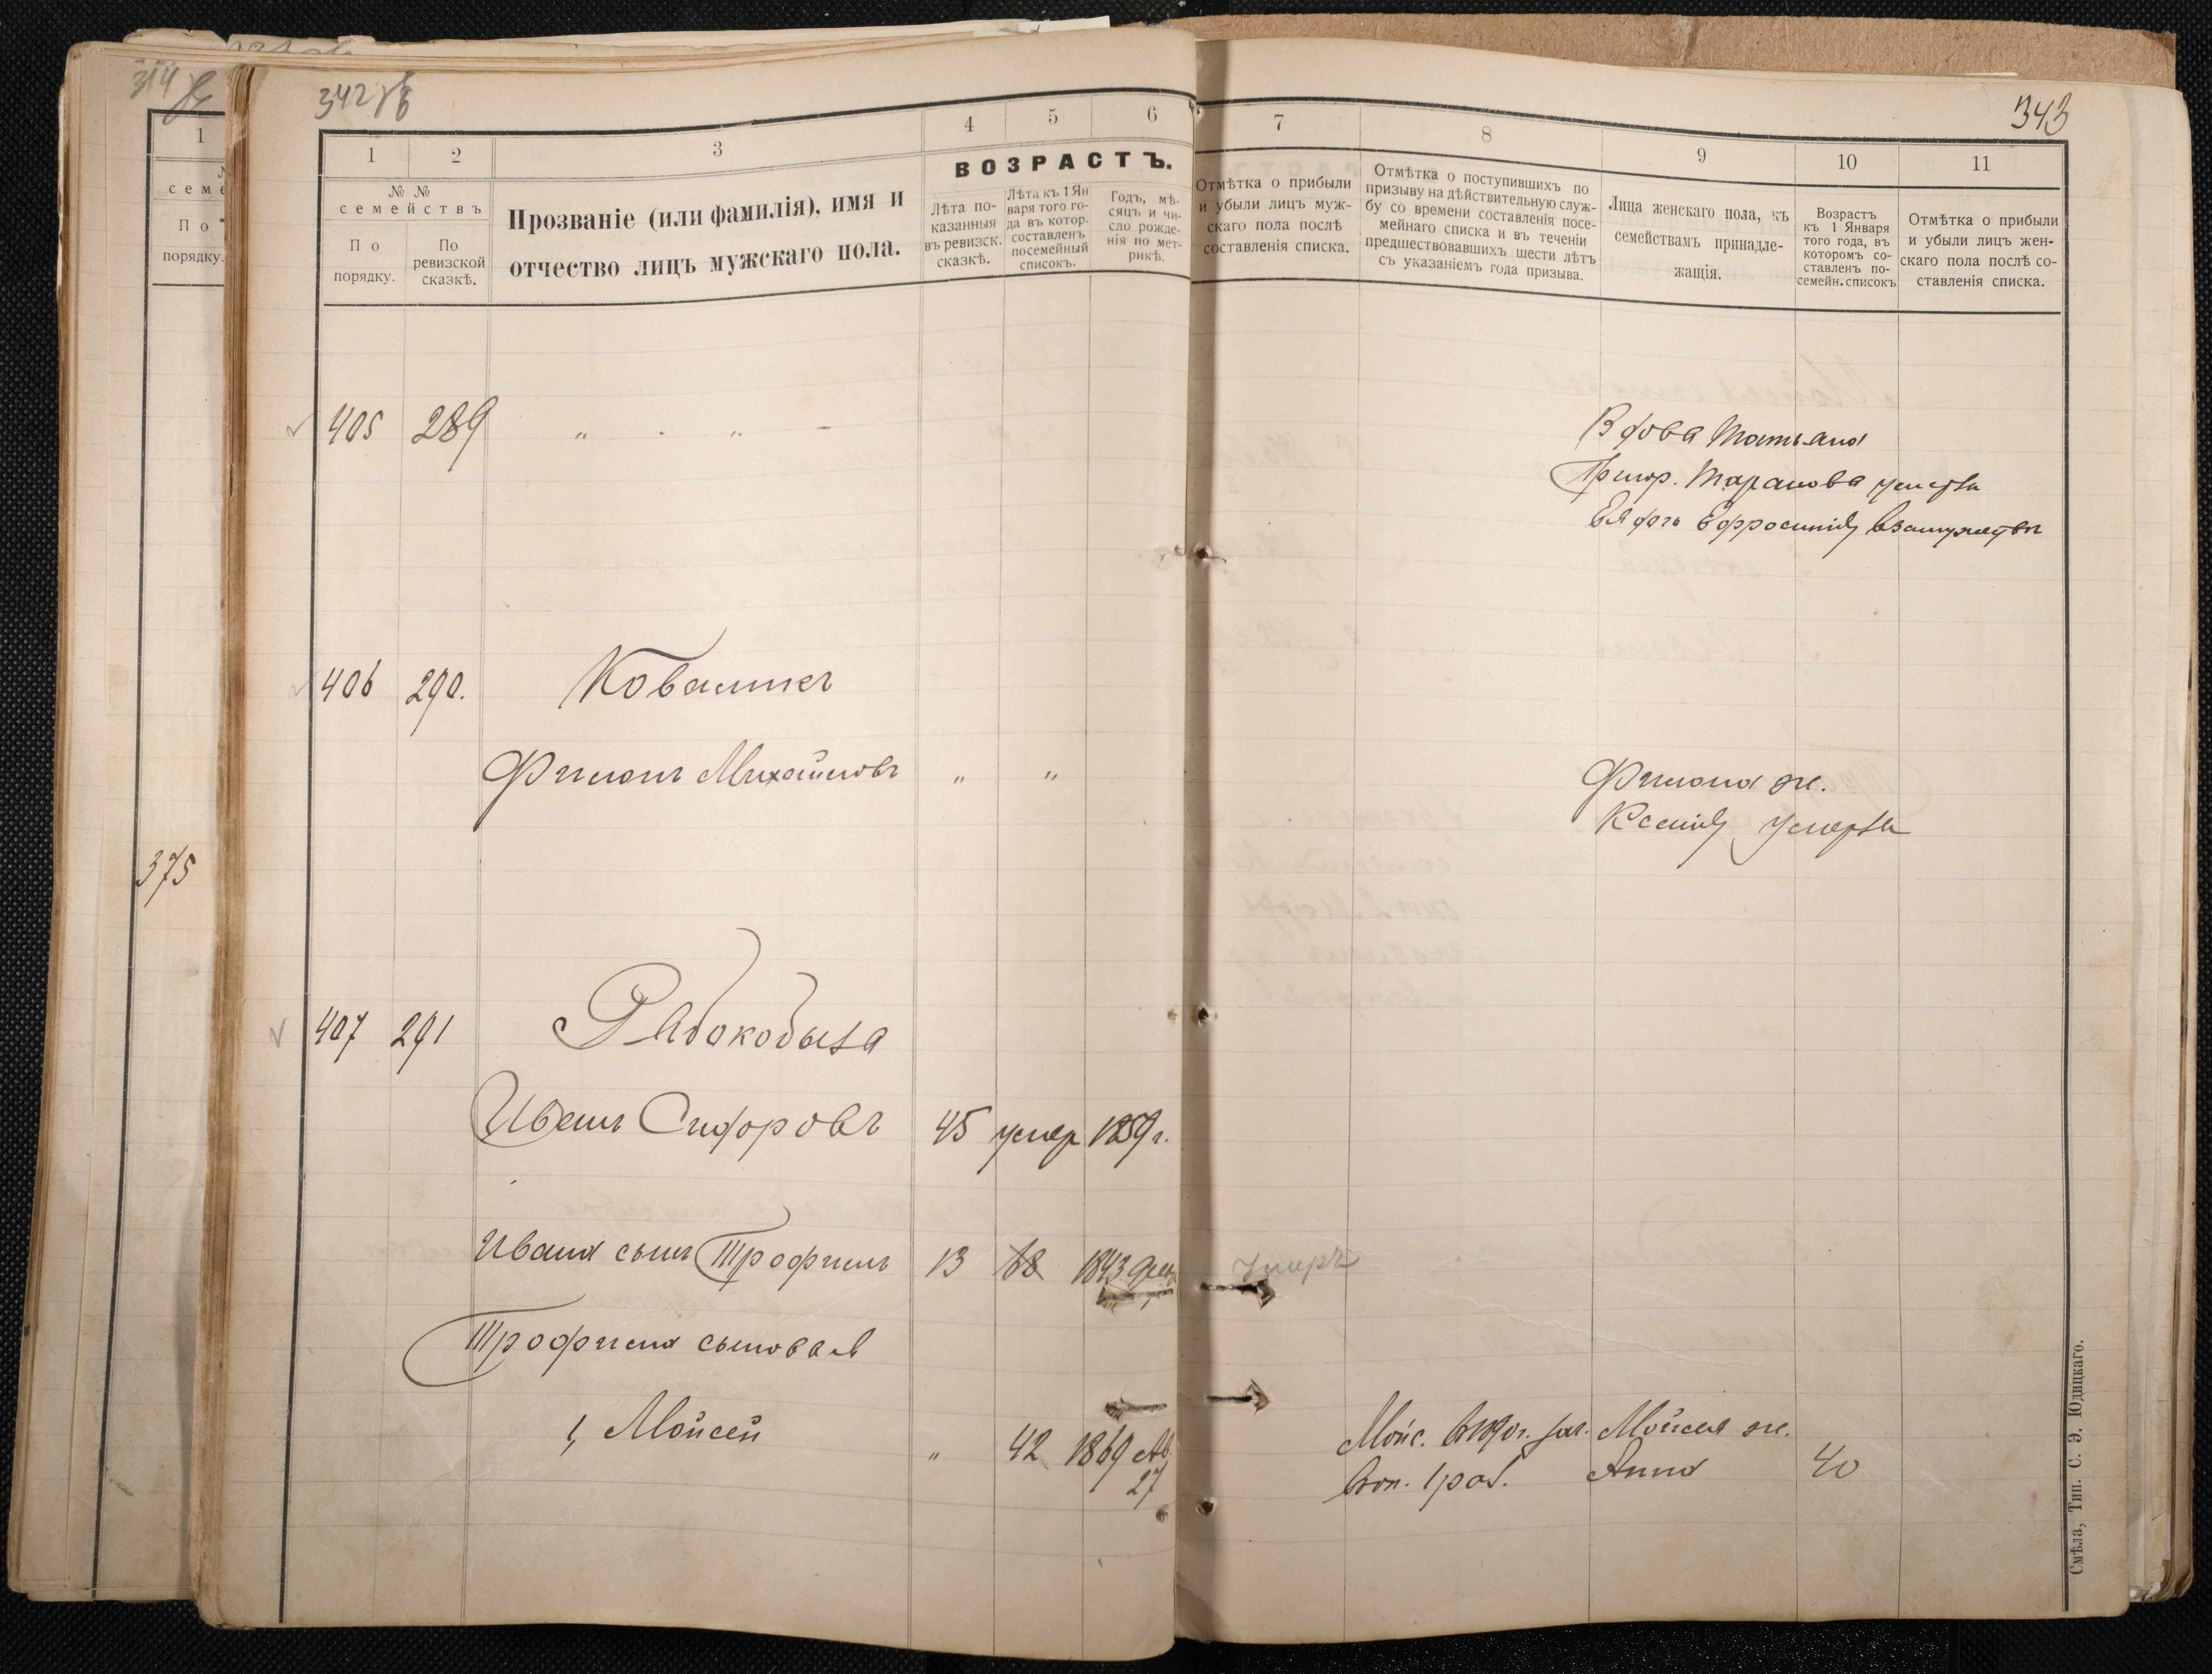 314
342
343
1
семе
По
порядку.
375
1
2
3
4
5
6
7
8
9
10
11
№ №
семействъ
По
порядку.
По
ревизской
сказкѣ.
Прозваніе (или фамилія), имя и
отчество лицъ мужскаго пола.
ВОЗРАСТЪ.
Лѣта по-
казанныя
въ ревизск.
сказкѣ.
Лѣта къ 1 Ян
варя того го-
да въ котор.
составленъ
посемейный
списокъ.
Годъ, мѣ-
сяцъ и чи-
сло рожде-
нія по мет-
рикѣ.
Отмѣтка о прибыли
и убыли лицъ муж-
скаго пола послѣ
составленія списка.
Отмѣтка о поступившихъ по
призыву на дѣйствительную служ-
бу со времени составленія посе-
мейнаго списка и въ теченіи
предшествовавшихъ шести лѣтъ
съ указаніемъ года призыва.
Лица женскаго пола, къ
семействамъ принадле-
жащія.
Возрастъ
къ 1 Января
того года, въ
которомъ со-
ставленъ по-
семейн. списокъ
Отмѣтка о прибыли
и убыли лицъ жен-
скаго пола послѣ со-
ставленія списка.
405 289 " - " -
Вдова Татьяна
Григор. Таранова умерла
Ея дочь Ефросинія въ замужествѣ
406 290. Коваликъ
Филонъ Михайловъ " "
Филона ж.
Ксенія умерла
407 291 Рабокобыла
Иванъ Сидоровъ 45 умер 1859 г.
Ивана сынъ Трофимъ 13 68 1843 умеръ
Трофима сыновья
1, Мойсей " 42 1869 Ав
27
Мойс. в 1890 г. зач.
в оп. 1 раз.
Мойсея ж.
Анна 40
Смѣла, Тип. С. Э. Юдицкаго.